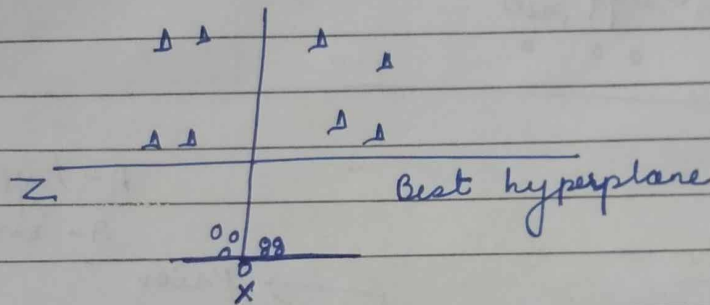 Z
Best hyperplane
X